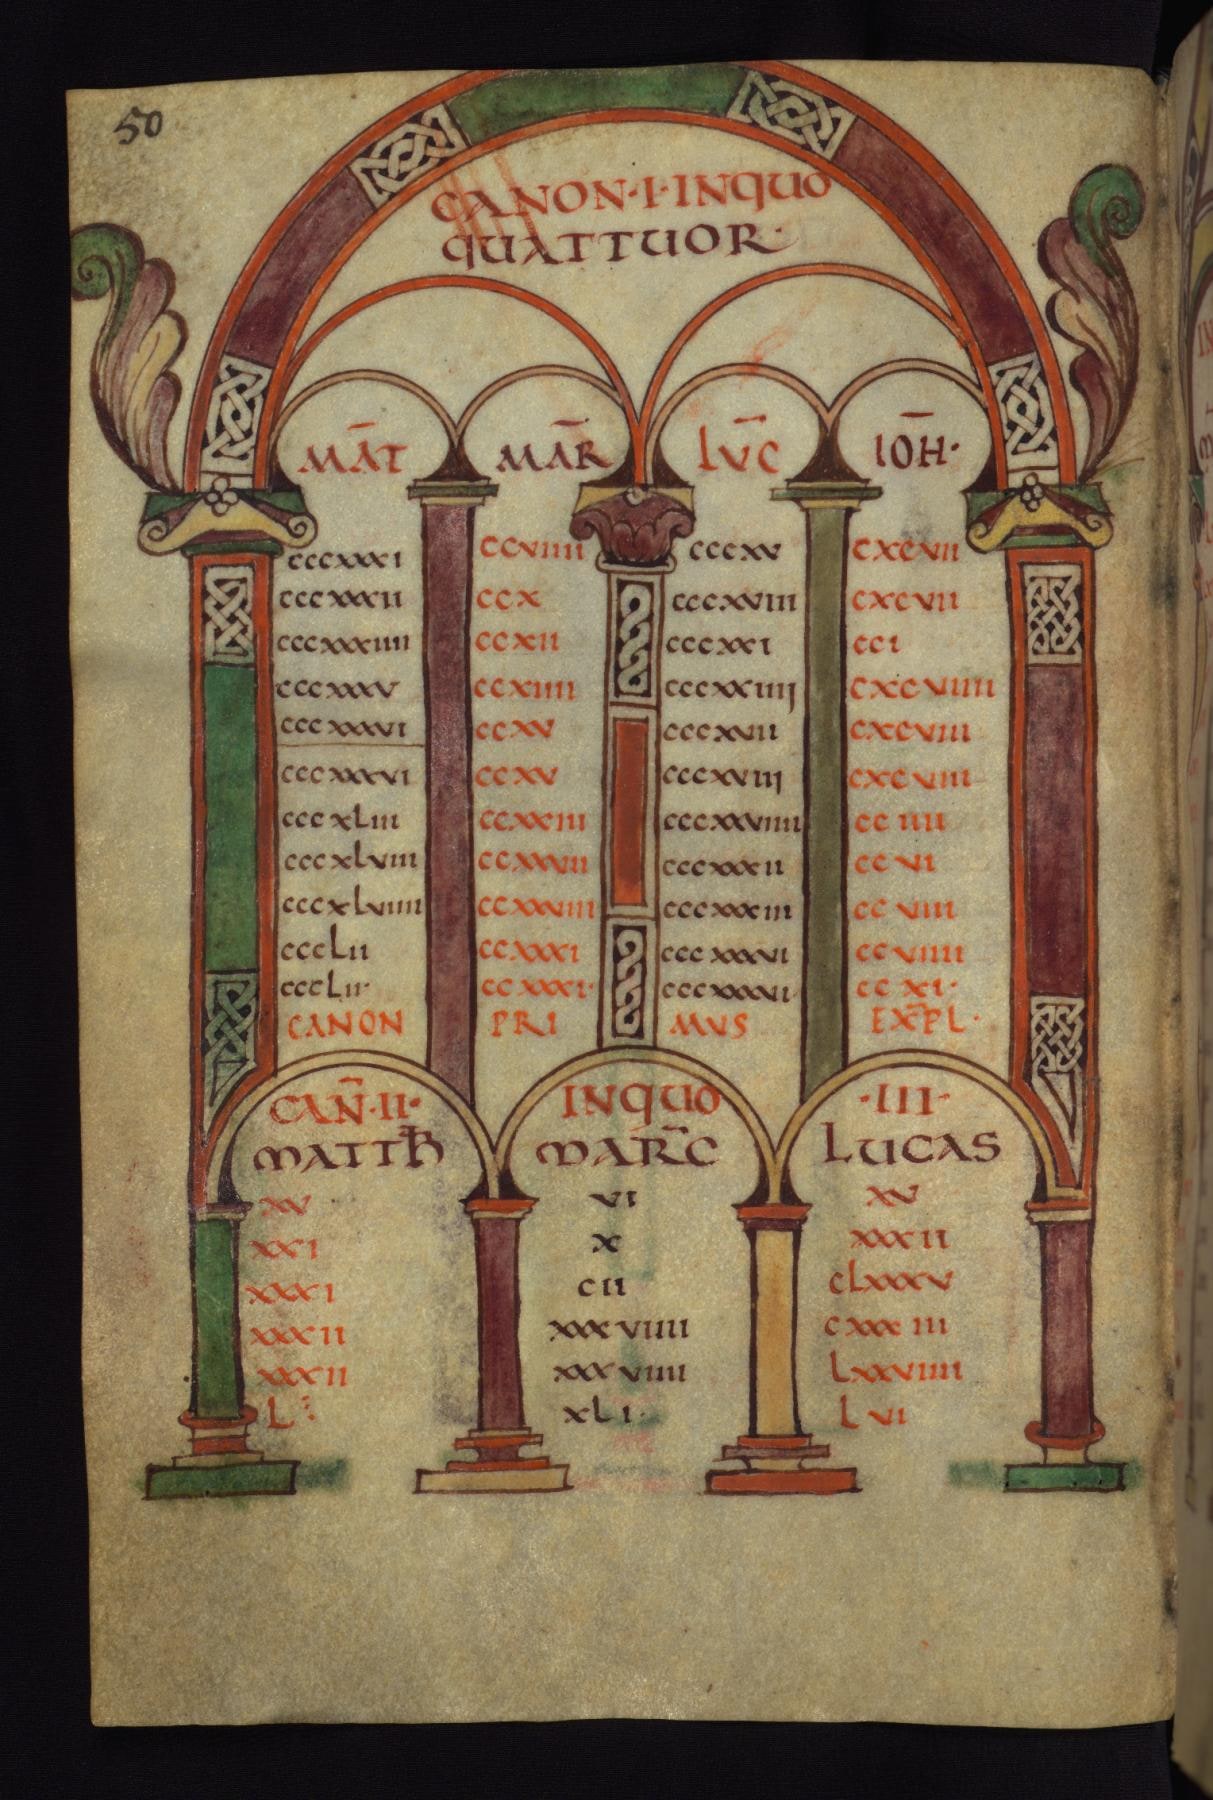 50
CANON·I·INQUO
QUATTUOR·
MAT MAR LVC IOH·
cccxxxi ccviiii cccxv cxcvii
cccxxxii ccx cccxviii cxcvii
cccxxxiiii ccxii cccxxi cci
cccxxxv ccxiiii cccxxiiii cxcviiii
cccxxxvi ccxv cccxvii cxcviii
cccxxxvi ccxv cccxviii cxcviii
cccxLiii ccxxiii cccxxviiii cciiii
cccxLviii ccxxvii cccxxxii ccvi
cccxLviiii ccxxviii cccxxxiii ccviii
cccLii ccxxxi cccxxxvi ccviiii
cccLii· ccxxxi· cccxxxvi· ccxi·
CANON PRI MVS EXPL·
CAN·II· INQUO ·III·
MATTH MARC LUCAS
xv vi xv
xxi x xxxii
xxxi cii cLxxxv
xxxii xxxviiii cxxxiii
xxxii xxxviiii Lxxviiii
L xLi· Lvi